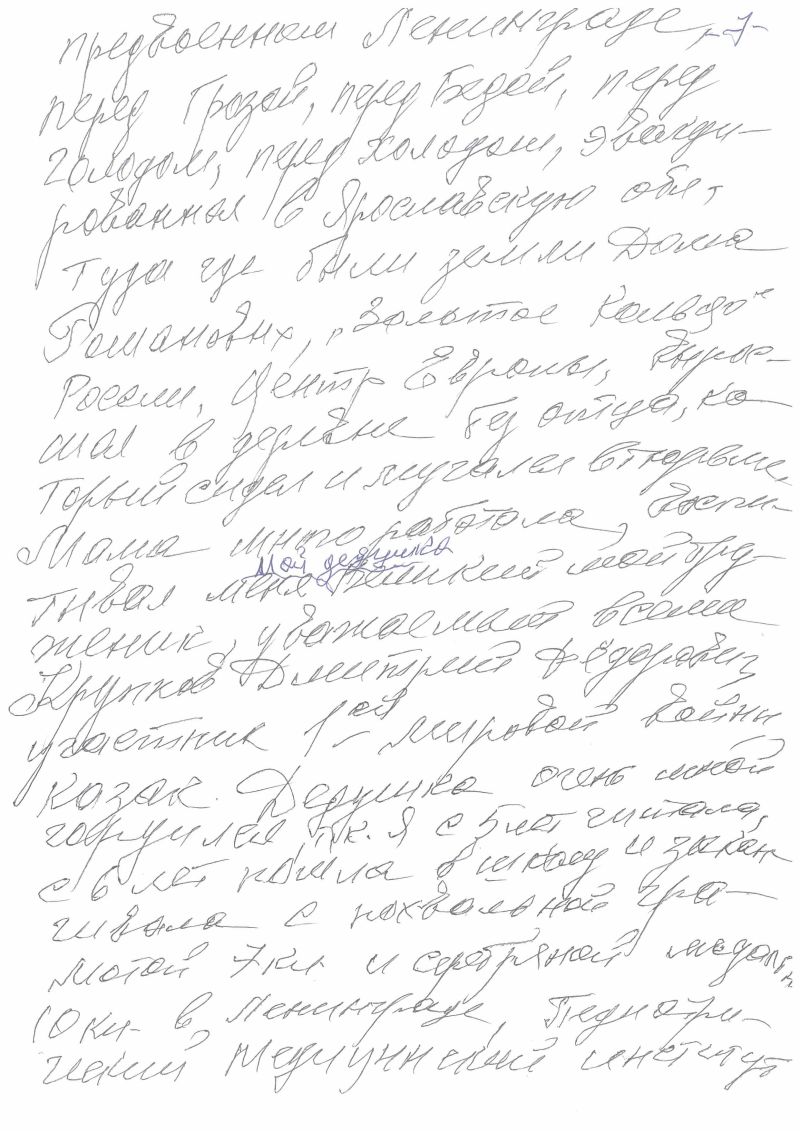 предвоенном Ленинграде, -7-
перед Грозой, перед Бедой, перед
голодом, перед холодом, эвакуи-
рованная в Ярославскую обл,
туда где были земли Дома
Романовых, „Золотое Кольцо"
России, Центр Европы, вырос-
шая в деревне без отца, ко-
торый сидел и мучался в тюрьме.
Мама много работала, воспи-
Мой дедушка
тывал меня великий мой труд-
женик, уважаемый всеми
Крупков Дмитрий Фёдорович,
участник 1-ой мировой войны
казак. Дедушка очень мной
гордился, т.к. я с 5 лет читала,
с 6 лет пошла в школу и закан
чивала с похвальной гра-
мотой 7 кл и серебряной медалью
10 кл в Ленинграде, Педиатри-
ческий Медицинский институт